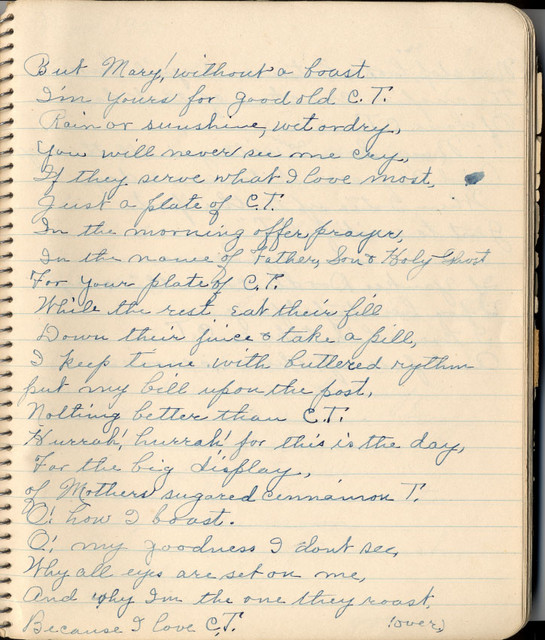 But Mary! without a boast
I'm yours for good old C.T.
Rain or sunshine, wet or dry,
You will never see me cry,
If they serve what I love most,
Just a plate of C.T.
In the morning offer prayer,
In the name of Father, Son & Holy Ghost
For your plate of C.T.
While the rest eat their fill
Down their juice & take a pill,
I keep time with buttered rythm
put my bill upon the post,
Nothing better than C.T.
Hurrah! hurrah! for this is the day,
For the big display,
of Mothers sugared cinnamon T.
O! how I boast.
O! my goodness I dont see,
Why all eyes are set on me,
And why Im the one they roast,
Because I love C.T. (over)